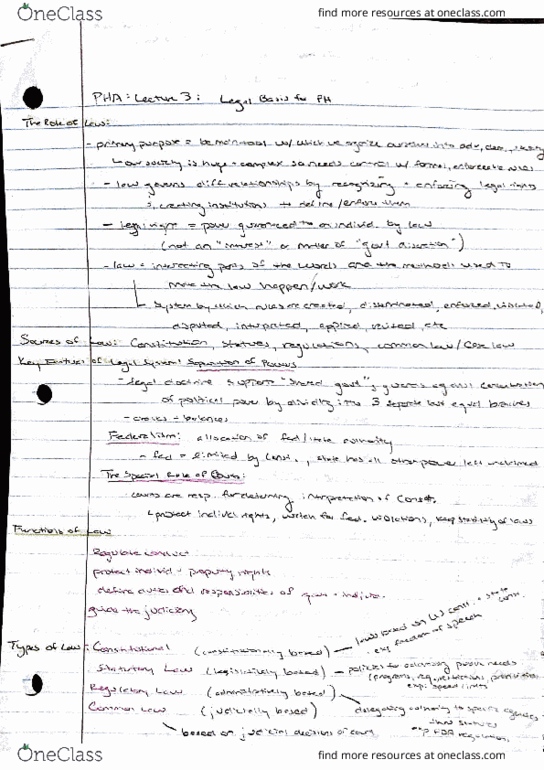 OneClass
find more resources at oneclass.com
PHA: Lecture 3: Legal Basis for PH
The Role of Law:
- primary purpose = be w/ which we organize ourselves into
↳ our society is huge + complex so needs control w/ formal, enforceable rules
- law governs diff relationships by recognizing + enforcing legal rights
creating institutions to define/enforce them
- legal right = power guaranteed to an individ. by law
(not an "interest" or matter of "govt discretion")
- law = intersecting parts of the words and the methods used to
make the law happen/work
↳ system by which rules are created, disseminated, enforced, violated,
disputed, interpreted, applied, revised, etc
Sources of Law: Constitution, statutes, regulations, common law/case law
Key Features of Legal System: Separation of Powers
- legal doctrine supports "shared govt"; guards against concentration
of political power by dividing into 3 separate but equal branches
- checks + balances
Federalism: allocation of fed/state authority
- fed = limited by Const., state has all other power left
The Special Role of Courts:
courts are resp. for determining interpretation of Const.
↳ protect individ rights, for fed. violations, keep stability of laws
Functions of Law
Regulate conduct
protect individ + property rights
define and responsibilities of govt + individ.
guide the judiciary
Types of Law: Constitutional (constitutionally based) — laws based on US const. + state const.
exp: freedom of speech
Statutory Law (legislatively based) — policies for addressing public needs
(programs, restrictions,
exp: speed limits
Regulatory Law (administratively based) delegating authority to specific agencies
statutes
FDA regulations
Common Law (judicially based)
based on judicial decisions of court
OneClass
find more resources at oneclass.com